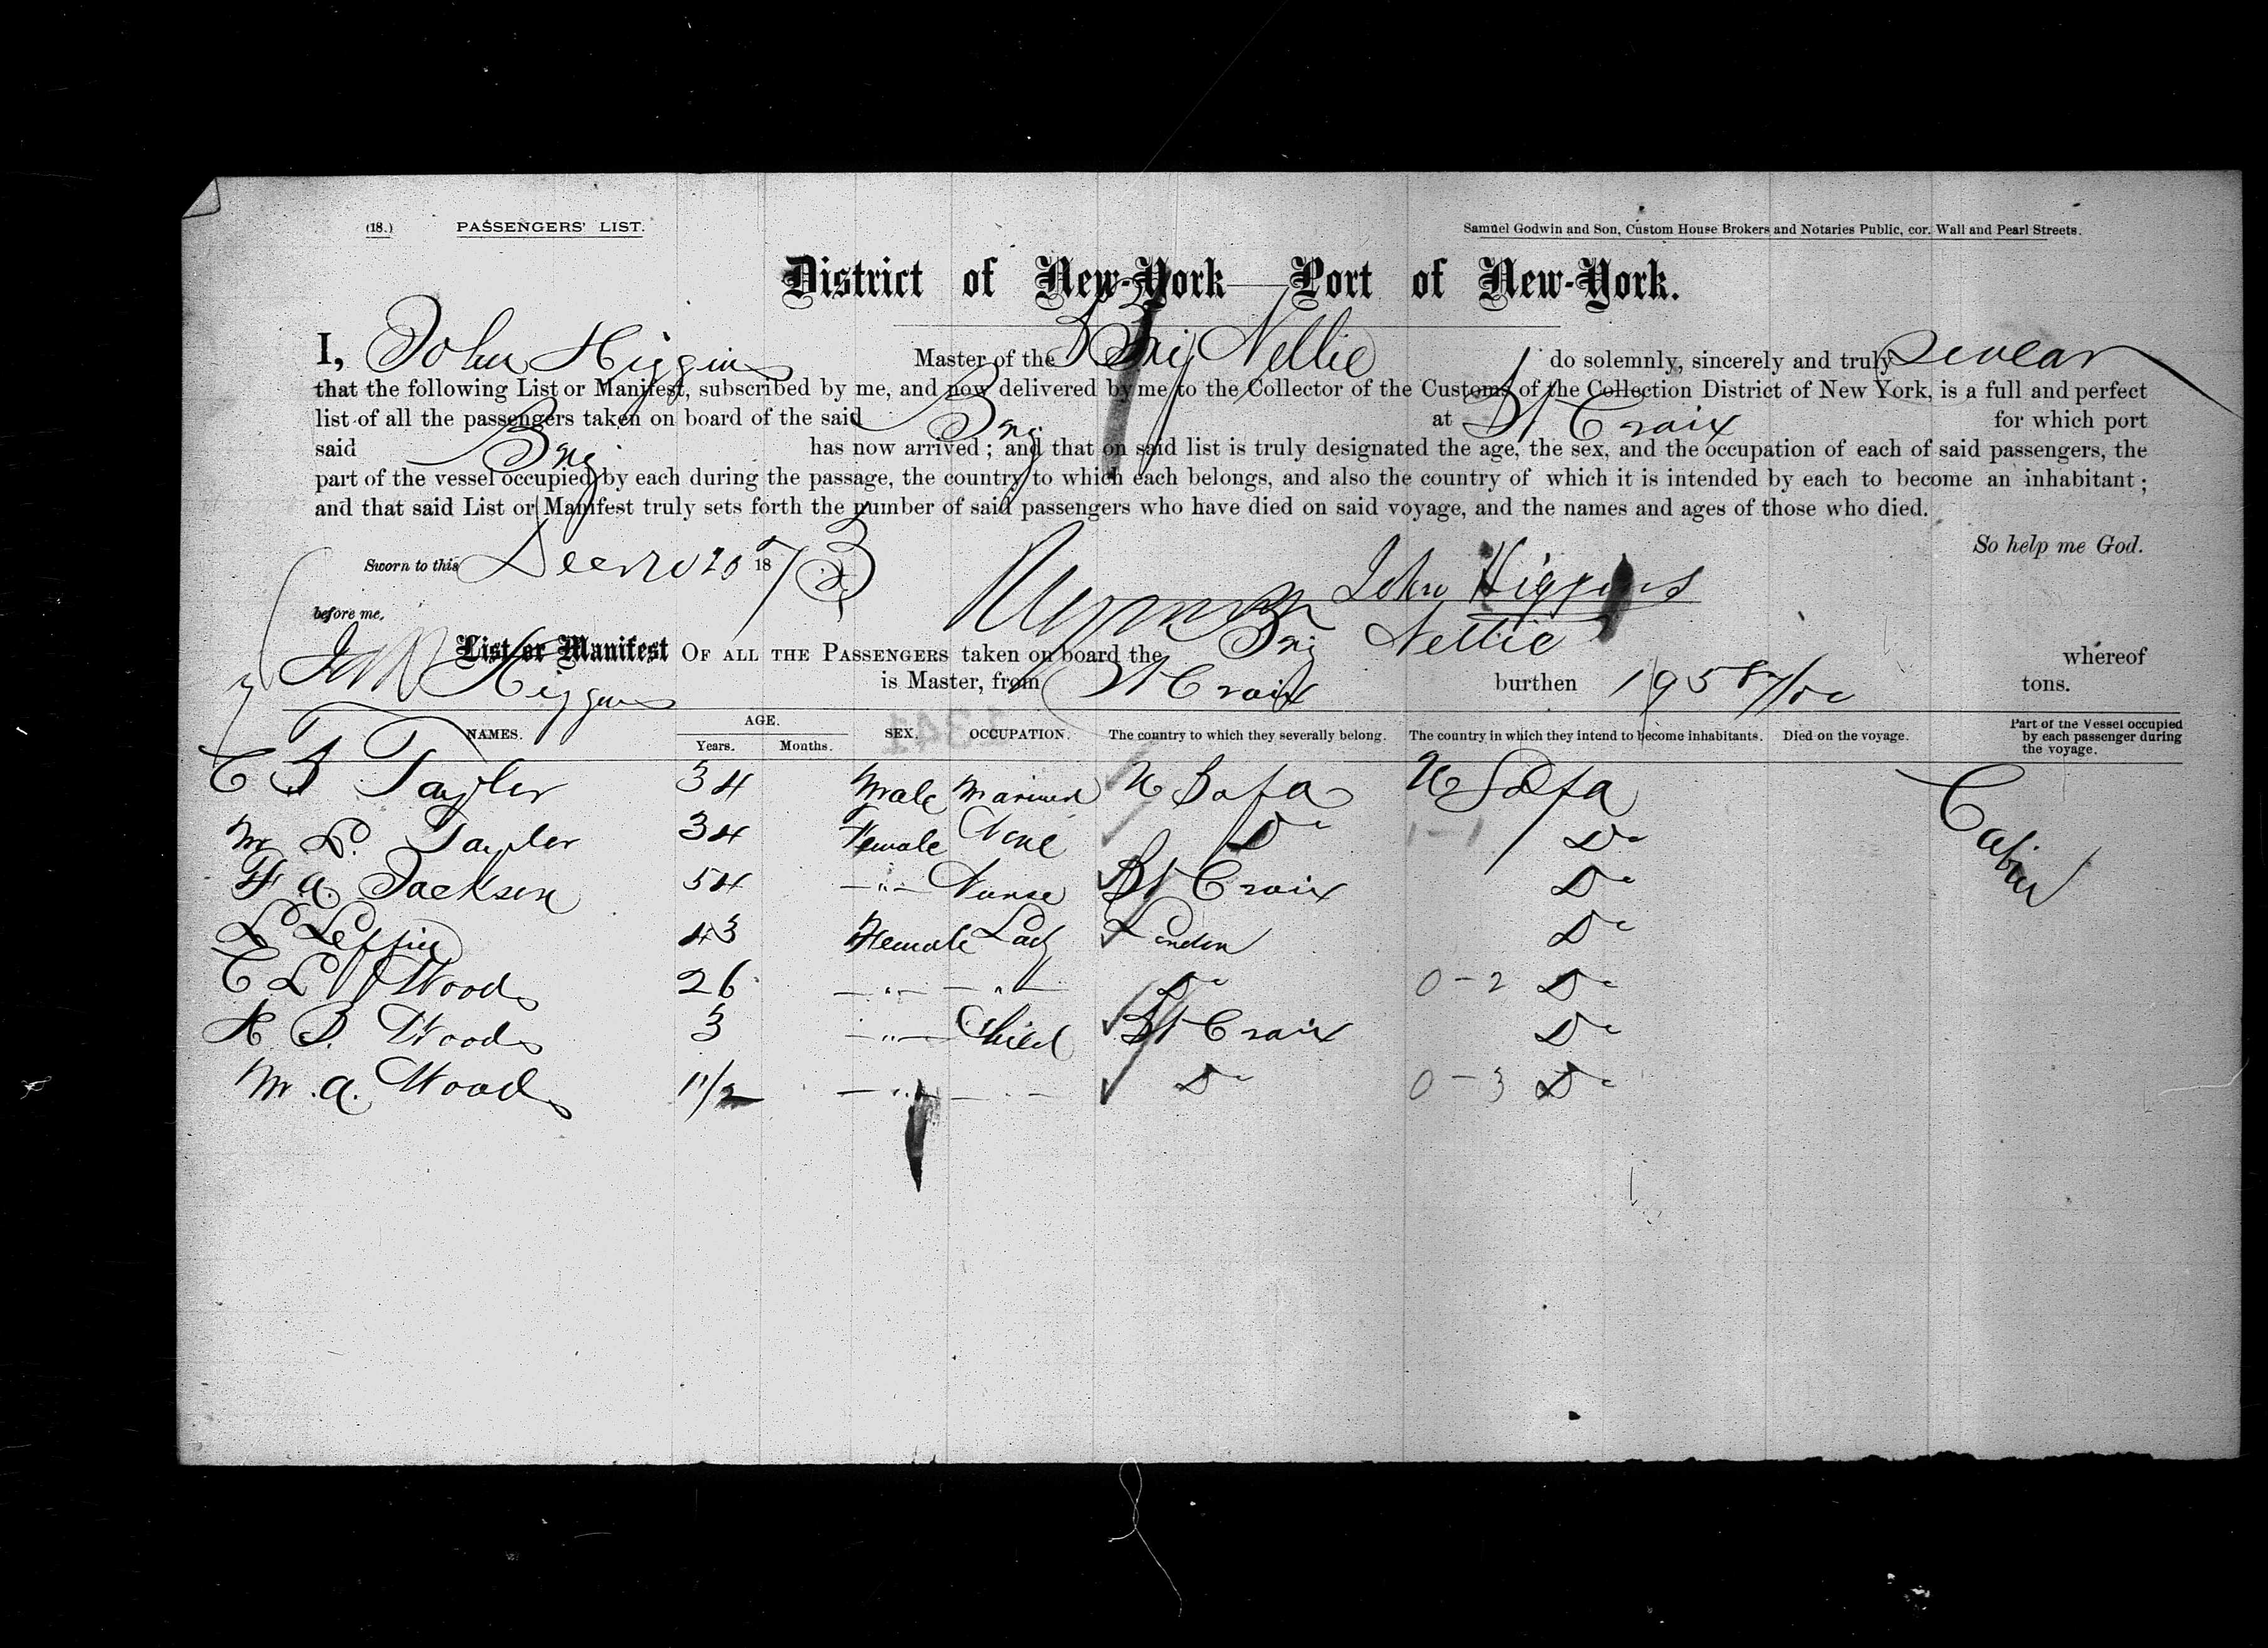 (18.) PASSENGERS' LIST. Samuel Godwin and Son, Custom House Brokers and Notaries Public, cor. Wall and Pearl Streets.
District of New-York—Port of New-York.
I, John Higgins Master of the Brig Nellie do solemnly, sincerely and truly swear
that the following List or Manifest, subscribed by me, and now delivered by me to the Collector of the Customs of the Collection District of New York, is a full and perfect
list of all the passengers taken on board of the said Brig at St Croix for which port
said Brig has now arrived; and that on said list is truly designated the age, the sex, and the occupation of each of said passengers, the
part of the vessel occupied by each during the passage, the country to which each belongs, and also the country of which it is intended by each to become an inhabitant;
and that said List or Manifest truly sets forth the number of said passengers who have died on said voyage, and the names and ages of those who died.
So help me God.
Sworn to this 20 1873
John Higgins
before me,
List or Manifest OF ALL THE PASSENGERS taken on board the Brig Nellie whereof
Higgins is Master, from St Croix burthen 195 87/100 tons.
NAMES. AGE. Years. Months. SEX. OCCUPATION. The country to which they severally belong. The country in which they intend to become inhabitants. Died on the voyage. Part of the Vessel occupied by each passenger during the voyage.
C B Taylor 34 Male Mariner U S of a U S of a Cabin
M L. Taylor 34 Female None Do 1-1 Do
H a. Jackson 54 —"— Nurse St Croix Do
L 43 Female Lady London Do
C L Woods 26 —"— —"— Do 0-2 Do
A B. Woods 3 —"— Child St Croix Do
M. a. Woods 1 1/2 —"— —"— Do 0-3 Do